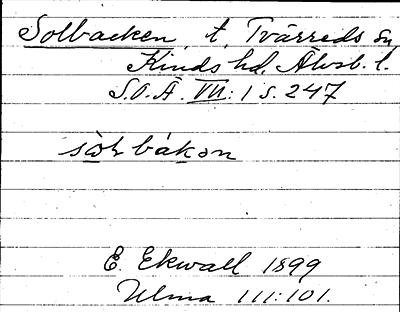 Solbacken, t. Tvärreds sn
Kinds hd. Älvsb. l.
S.O.Ä. VII: 1 s. 247
bákən
E. Ekwall 1899
Ulma 111:101.